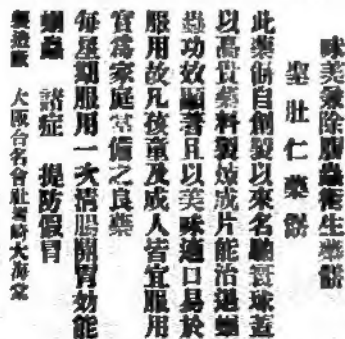 味美發除腹蟲衛生藥餅
聖肚仁藥餅
此藥餅自創製以來名馳寰球蓋
以高貴藥料製煉成片能治
蟲功效顯著且以美味適口易於
服用故凡孩童及成人皆宜服用
實爲家庭常備之良藥
每星期服用一次清腸開胃効能
蟲 諸症 提防假冒
大 名會社 大海堂